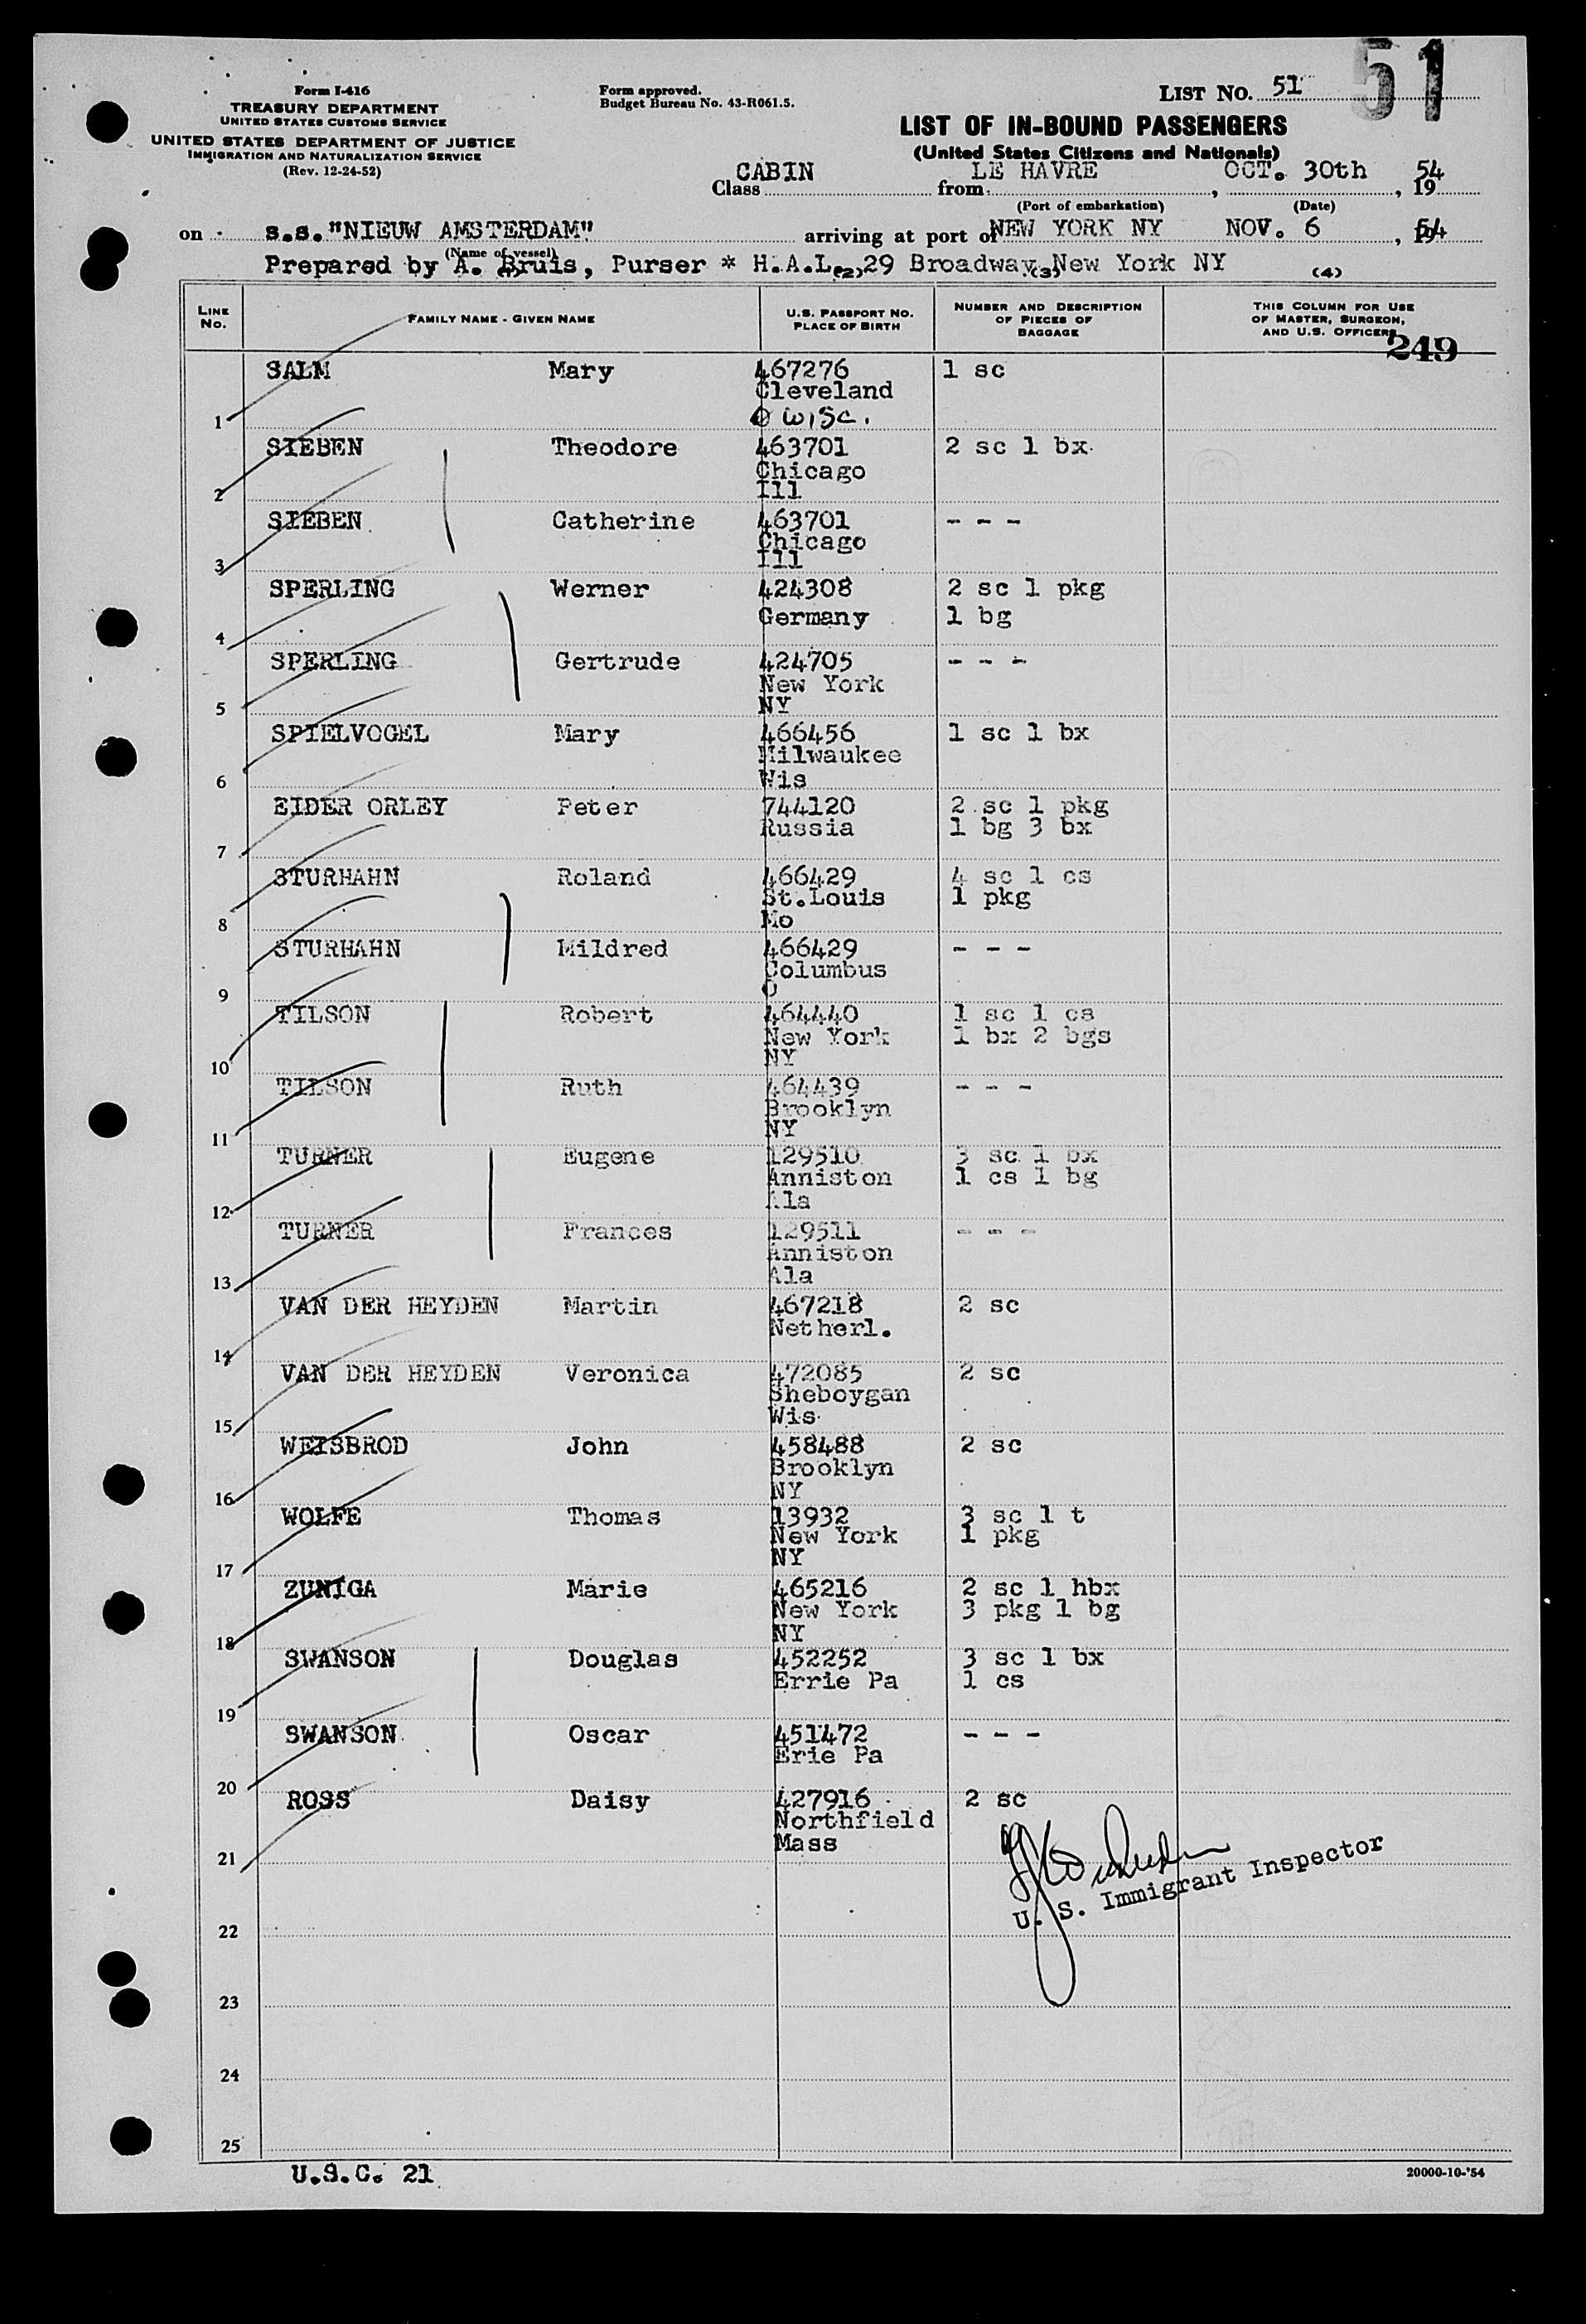 51
Form I-416
TREASURY DEPARTMENT
UNITED STATES CUSTOMS SERVICE
UNITED STATES DEPARTMENT OF JUSTICE
IMMIGRATION AND NATURALIZATION SERVICE
(Rev. 12-24-52)
Form approved.
Budget Bureau No. 43-R061.5.
LIST NO. 51
LIST OF IN-BOUND PASSENGERS
(United States Citizens and Nationals)
Class CABIN from LE HAVRE, OCT. 30th, 1954
(Port of embarkation) (Date)
on s.s."NIEUW AMSTERDAM" arriving at port of NEW YORK NY NOV. 6, 1954
(Name of vessel)
Prepared by A. Bruis, Purser * H.A.L. 29 Broadway, New York NY
(2) (3) (4)
LINE No. FAMILY NAME - GIVEN NAME U.S. PASSPORT NO. PLACE OF BIRTH NUMBER AND DESCRIPTION OF PIECES OF BAGGAGE THIS COLUMN FOR USE OF MASTER, SURGEON, AND U.S. OFFICERS
249
SALM Mary 467276 1 sc
Cleveland
1 O Wisc.
SIEBEN Theodore 463701 2 sc 1 bx
Chicago
2 Ill
SIEBEN Catherine 463701 - - -
Chicago
3 Ill
SPERLING Werner 424308 2 sc 1 pkg
Germany 1 bg
4
SPERLING Gertrude 424705 - - -
New York
5 NY
SPIELVOGEL Mary 466456 1 sc 1 bx
Milwaukee
6 Wis
EIDER ORLEY Peter 744120 2 sc 1 pkg
Russia 1 bg 3 bx
7
STURHAHN Roland 466429 4 sc 1 cs
St.Louis 1 pkg
8 Mo
STURHAHN Mildred 466429 - - -
Columbus
9 O
TILSON Robert 464440 1 sc 1 cs
New York 1 bx 2 bgs
10 NY
TILSON Ruth 464439 - - -
Brooklyn
11 NY
TURNER Eugene 129510 3 sc 1 bx
Anniston 1 cs 1 bg
12 Ala
TURNER Frances 129511 - - -
Anniston
13 Ala
VAN DER HEYDEN Martin 467218 2 sc
Netherl.
14
VAN DER HEYDEN Veronica 472085 2 sc
Sheboygan
15 Wis
WEISBROD John 458488 2 sc
Brooklyn
16 NY
WOLFE Thomas 13932 3 sc 1 t
New York 1 pkg
17 NY
ZUNIGA Marie 465216 2 sc 1 hbx
New York 3 pkg 1 bg
18 NY
SWANSON Douglas 452252 3 sc 1 bx
Errie Pa 1 cs
19
SWANSON Oscar 451472 - - -
Erie Pa
20
ROSS Daisy 427916 2 sc
Northfield
Mass
21
U. S. Immigrant Inspector
22
23
24
25
U.S.C. 21
20000-10-'54